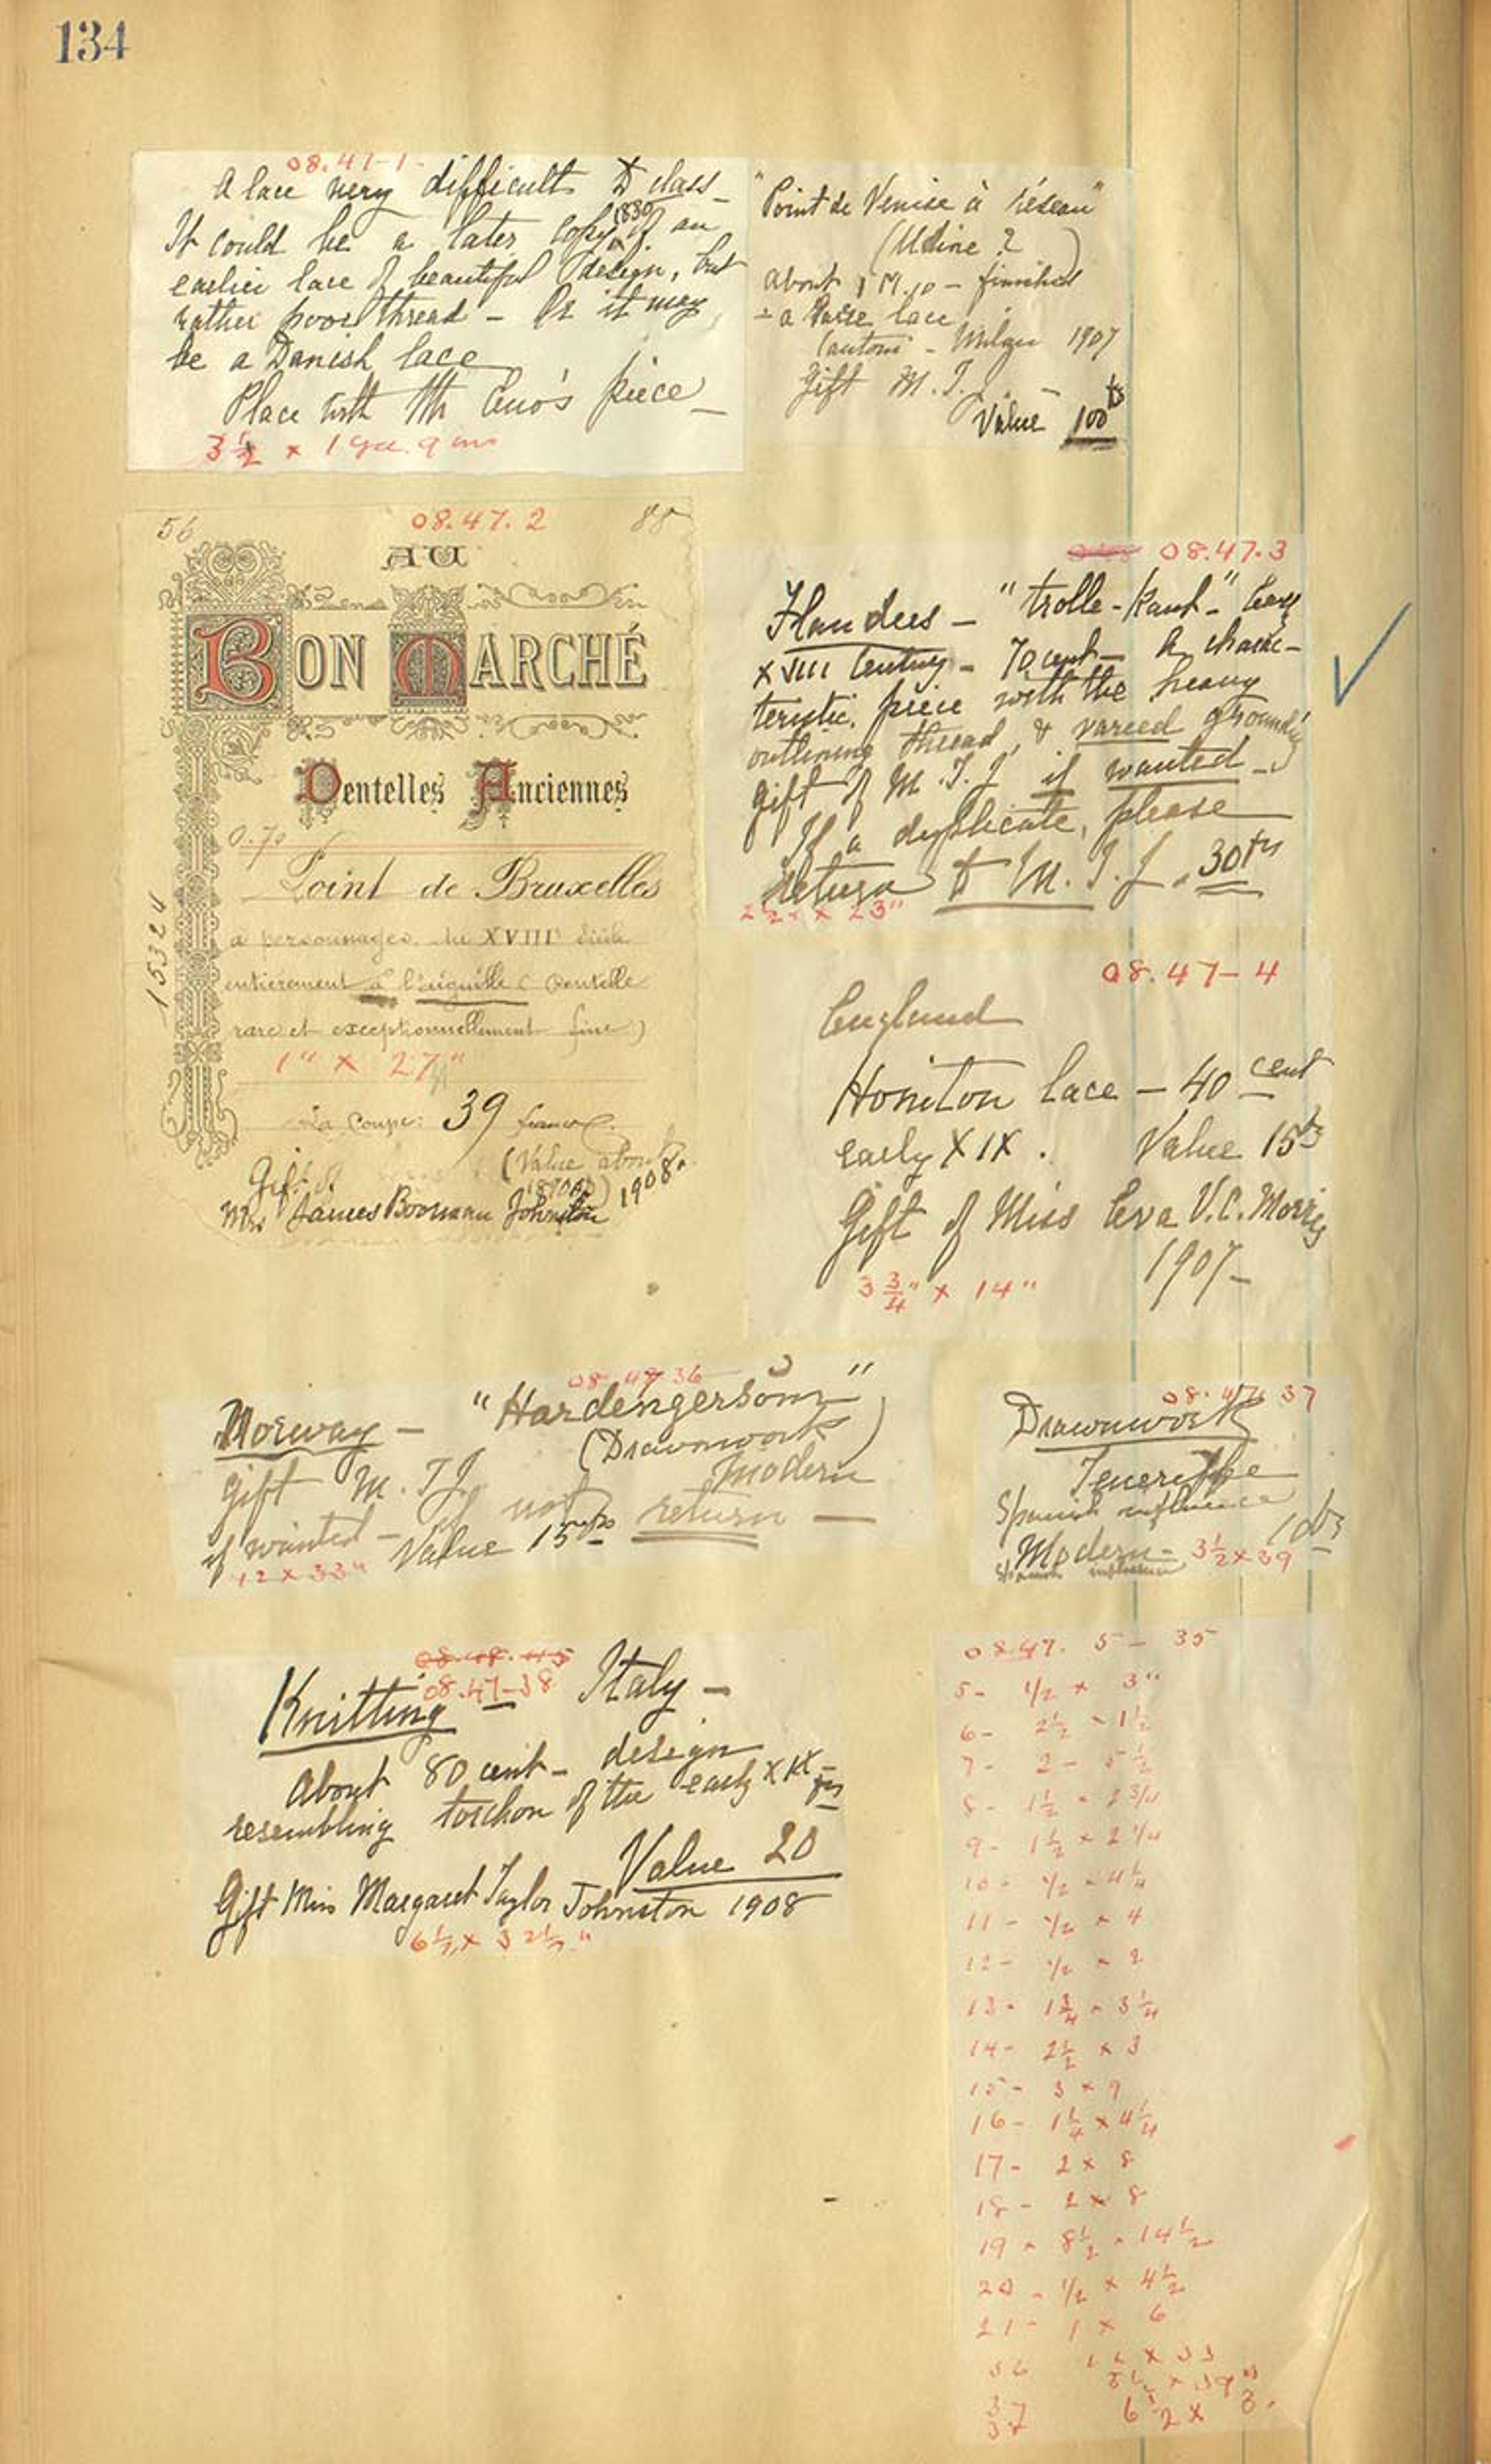 134
08.47-1-
A lace very difficult to class_
It could be a later copy 1830 of an
earlier lace of beautiful design, but
rather poor thread - Or it may
be a Danish lace
Place with Mr Eno's piece_
3 1/2 x 1 yd. 9 ins
"Point de Venise à réseau"
(Udine ?)
about 1 M.10 - finished
- a lace
- Milan 1907
Gift M.T.J. -
Value 100
56 08.47.2 88
AU
BON MARCHÉ
Dentelles Anciennes
0.70
Point de Bruxelles
a personnages du XVIII siècle
entièrement à l'aiguille (Dentelle
rare et exceptionnellement fine)
1" x 27"
La Coupe: 39 francs.
(Value about
Gift of
Mrs James Boorman Johnston 1908.
15324
08.47.3
Flanders - "trolle-kant" Early
XVIII Century - 70 cent - A charac-
teristic piece with the heavy
outlining thread, & varied grounds
gift of M.T.J. if wanted -
If a duplicate, please
return to M.T.J. 30
2 1/2 x 23"
08.47-4
England
Honiton lace - 40 cent
early XIX. Value 15
Gift of Miss Eva V.C. Morris
1907-
3 3/4" x 14"
08.47 36
Norway - "Hardengersöm"
(Drawnwork)
Gift M.T.J. Modern
if wanted - if not return -
Value 15
12 x 33"
08.47 37
Drawnwork
Teneriffe
Spanish influence
Modern - 3 1/2 x 39
Spanish influence
08.47-38
Knitting - Italy -
About 80 cent - design
resembling torchon of the early XIX -
Value 20
Gift Miss Margaret Taylor Johnston 1908
08.47. 5 - 35
5 - 1/2 x 3"
6 - 2 1/2 x 1 1/2
7 - 2 - 5 1/2
8 - 1 1/2 - 2 3/4
9 - 1 1/2 x 2 1/4
10 - 1/2 - 4 1/4
11 - 1/2 x 4
12 - 1/2 x 2
13 - 1 3/4 x 3 1/4
14 - 2 1/2 x 3
15 - 3 x 9
16 - 1 1/4 x 4 1/4
17 - 2 x 8
18 - 2 x 8
19 - 8 1/2 x 14 1/2
20 - 1/2 x 4 1/2
21 - 1 x 6
36 12 x 33
37